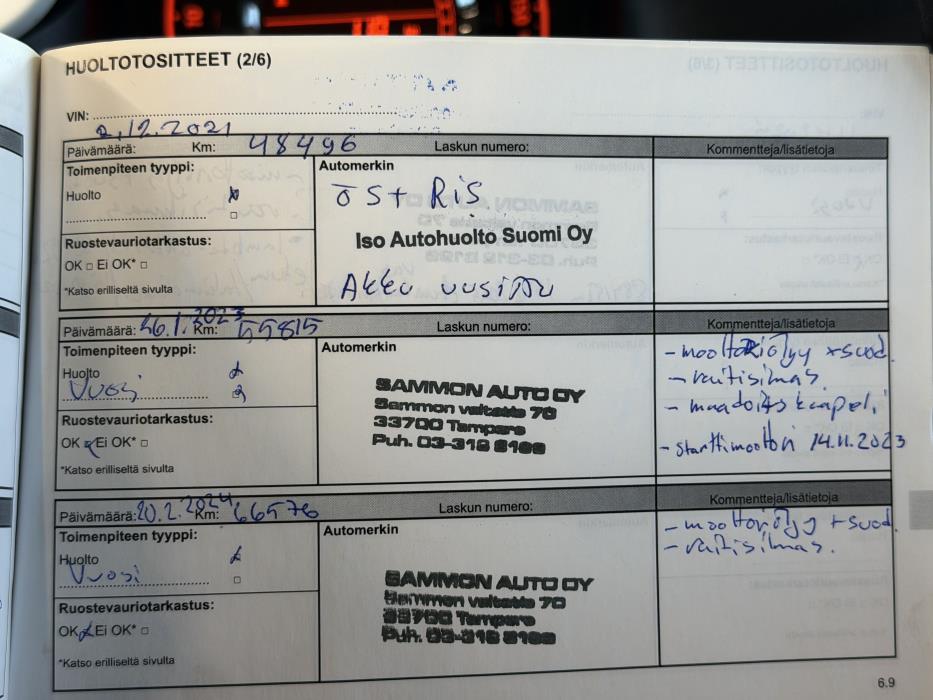 HUOLTOTOSITTEET (2/6)
VIN:
2.12.2021
Päivämäärä: Km: 48496 Laskun numero: Kommentteja/lisätietoja
Toimenpiteen tyyppi:
Huolto
Automerkin
ÖS+ RiS.
Iso Autohuolto Suomi Oy
Akku uusittu
Ruostevauriotarkastus:
OK □ Ei OK* □
*Katso erilliseltä sivulta
Päivämäärä: 26.1.2023 Km: 55815 Laskun numero: Kommentteja/lisätietoja
Toimenpiteen tyyppi:
Huolto
Vuosi
Automerkin
SAMMON AUTO OY
Sammon valtatie 70
33700 Tampere
Puh. 03-318 8188
Ruostevauriotarkastus:
OK Ei OK* □
*Katso erilliseltä sivulta
- moottoriöljy + suod.
- raitisilmas.
- maadoitskaapeli
- starttimoottori 14.11.2023
Päivämäärä: 20.2.2024 Km: 66576 Laskun numero: Kommentteja/lisätietoja
Toimenpiteen tyyppi:
Huolto
Vuosi
Automerkin
SAMMON AUTO OY
Sammon valtatie 70
33700 Tampere
Puh. 03-318 8188
Ruostevauriotarkastus:
OK Ei OK* □
*Katso erilliseltä sivulta
- moottoriöljy + suod.
- raitisilmas.
6.9